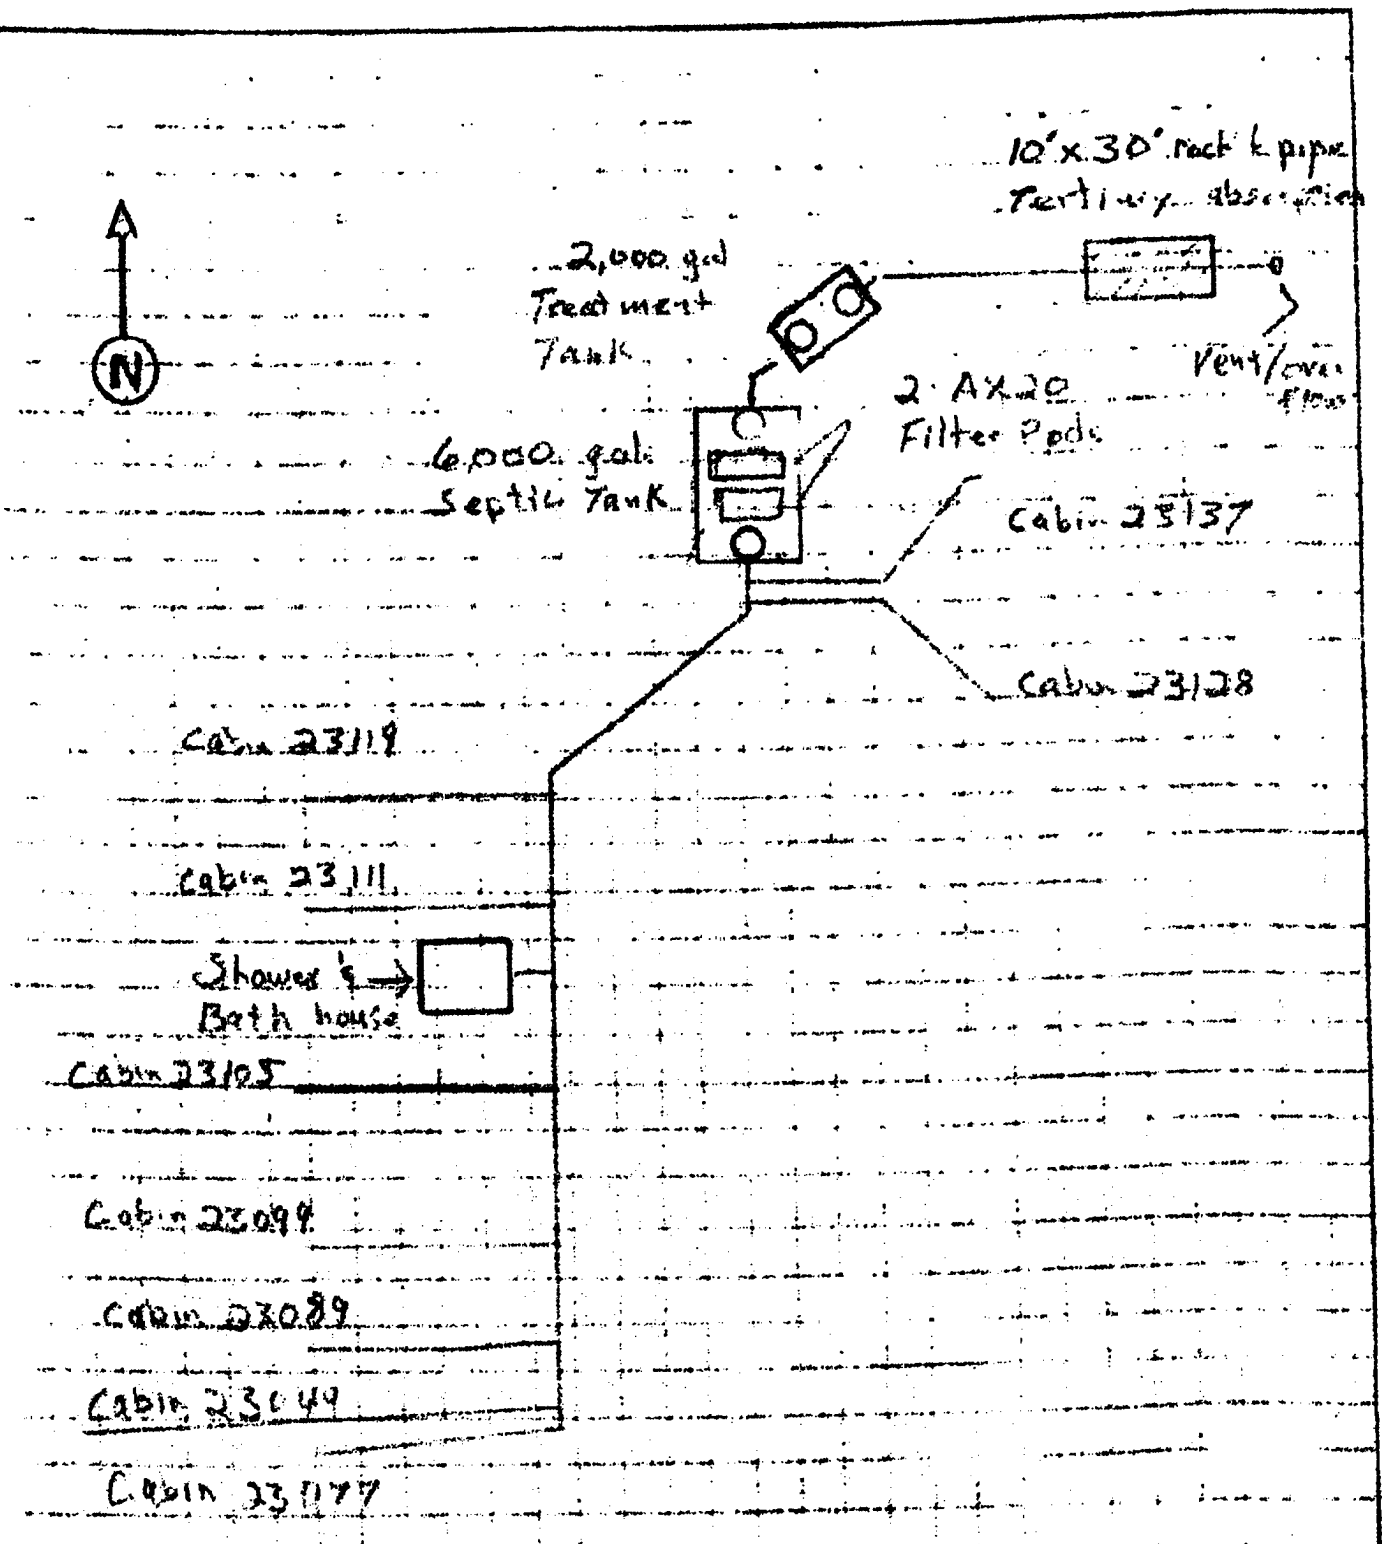 10'x30' rock & pipe
Tertiary absorption
2,000 gal
Treatment
Tank
N
Vent/over
flow
2 AX20
Filter Pods
6,000 gal
Septic Tank
Cabin 23137
Cabin 23128
Cabin 23119
Cabin 23111
Shower &
Bath house
Cabin 23105
Cabin 23099
Cabin 23089
Cabin
Cabin